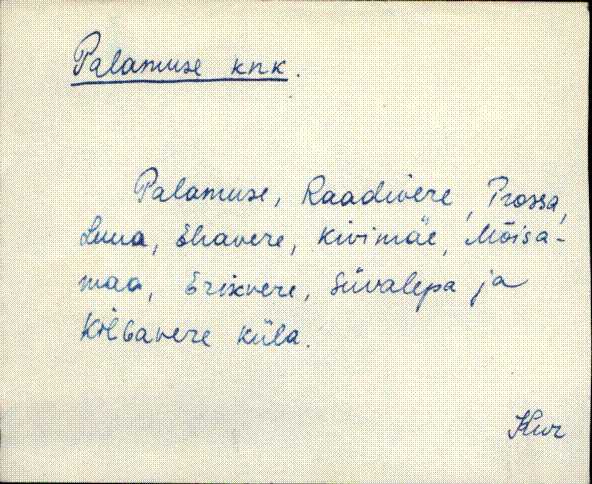 Palamuse knk.
Palamuse, Raadivere, Prossa,
Luua, Ehavere, Kivimäe, Mõisa-
maa, Erikvere, Süvalepa ja
Kõlbavere küla.